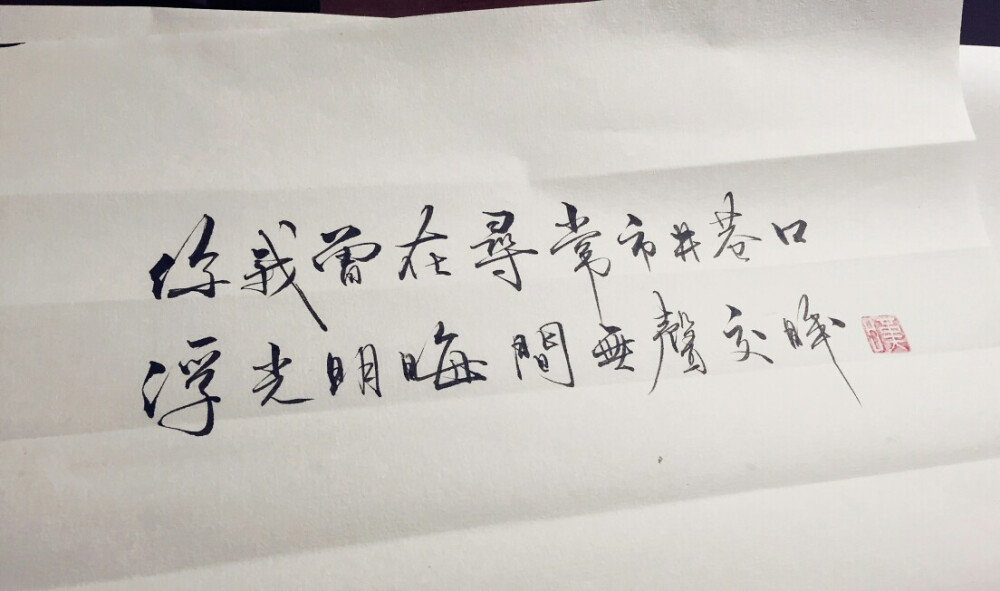 你我曾在尋常市井巷口
浮光明晦間無聲交